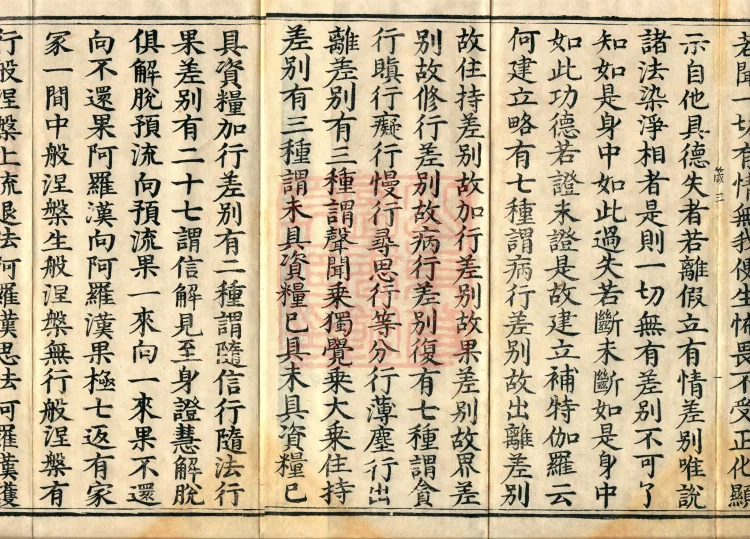 若聞一切有情無我便生怖畏不受正化顯
示自他具德失者若離假立有情差別唯說
諸法染淨相者是則一切無有差別不可了
知如是身中如此過失若斷未斷如是身中
如此功德若證未證是故建立補特伽羅云
何建立略有七種謂病行差別故出離差別
故住持差別故加行差別故果差別故界差
別故修行差別故病行差別復有七種謂貪
行瞋行癡行慢行尋思行等分行薄塵行出
離差別有三種謂聲聞乘獨覺乘大乘住持
差別有三種謂未具資糧已具未具資糧已
具資糧加行差別有二種謂隨信行隨法行
果差別有二十七謂信解見至身證慧解脫
俱解脫預流向預流果一來向一來果不還
向不還果阿羅漢向阿羅漢果極七返有家
家一間中般涅槃生般涅槃無行般涅槃有
行般涅槃上流退法阿羅漢思法阿羅漢護